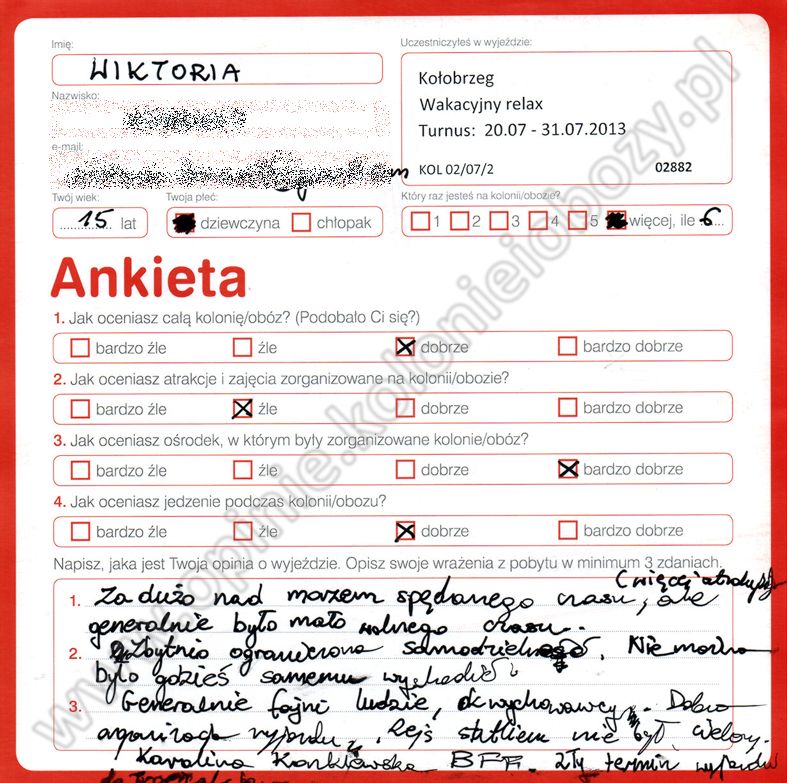 Imię:
WIKTORIA
Nazwisko:
e-mail:
Twój wiek:
15 lat
Twoja płeć:
dziewczyna chłopak
Uczestniczyłeś w wyjeździe:
Kołobrzeg
Wakacyjny relax
Turnus: 20.07 - 31.07.2013
KOL 02/07/2 02882
Który raz jesteś na kolonii/obozie?
1 2 3 4 5 więcej, ile 6
Ankieta
1. Jak oceniasz całą kolonię/obóz? (Podobało Ci się?)
bardzo źle źle dobrze bardzo dobrze
2. Jak oceniasz atrakcje i zajęcia zorganizowane na kolonii/obozie?
bardzo źle źle dobrze bardzo dobrze
3. Jak oceniasz ośrodek, w którym były zorganizowane kolonie/obóz?
bardzo źle źle dobrze bardzo dobrze
4. Jak oceniasz jedzenie podczas kolonii/obozu?
bardzo źle źle dobrze bardzo dobrze
Napisz, jaka jest Twoja opinia o wyjeździe. Opisz swoje wrażenia z pobytu w minimum 3 zdaniach.
(więcej atrakcji)
1. Za dużo nad morzem spędzanego czasu, ale
generalnie było mało wolnego czasu.
2. Zbytnio ograniczona samodzielność. Nie można
było gdzieś samemu wychodzić
3. Generalnie fajni ludzie, ok wychowawcy. Dobra
organizacja wyjazdu, Rejs statkiem nie był ciekawy.
Karolina BFF. zły termin wyjazdu
www.opinie.kolonieiobozy.pl